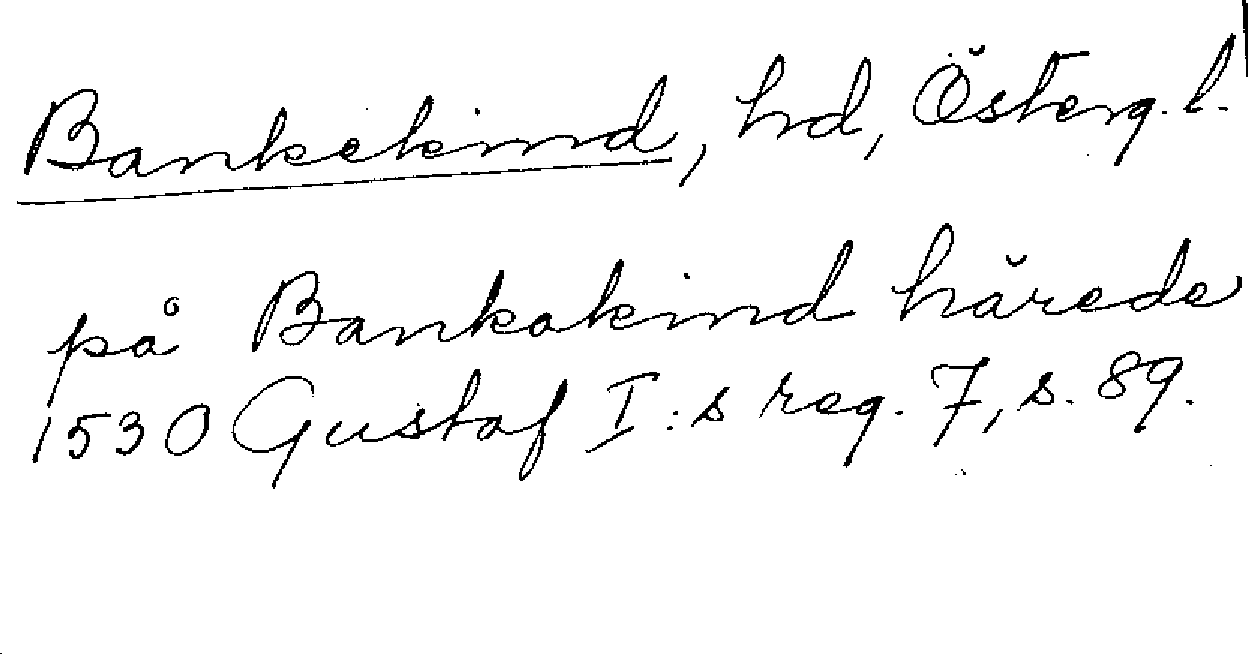 Bankekind, hd, Österg. l.
på Bankakind härede
1530 Gustaf I:s reg. 7, s. 89.